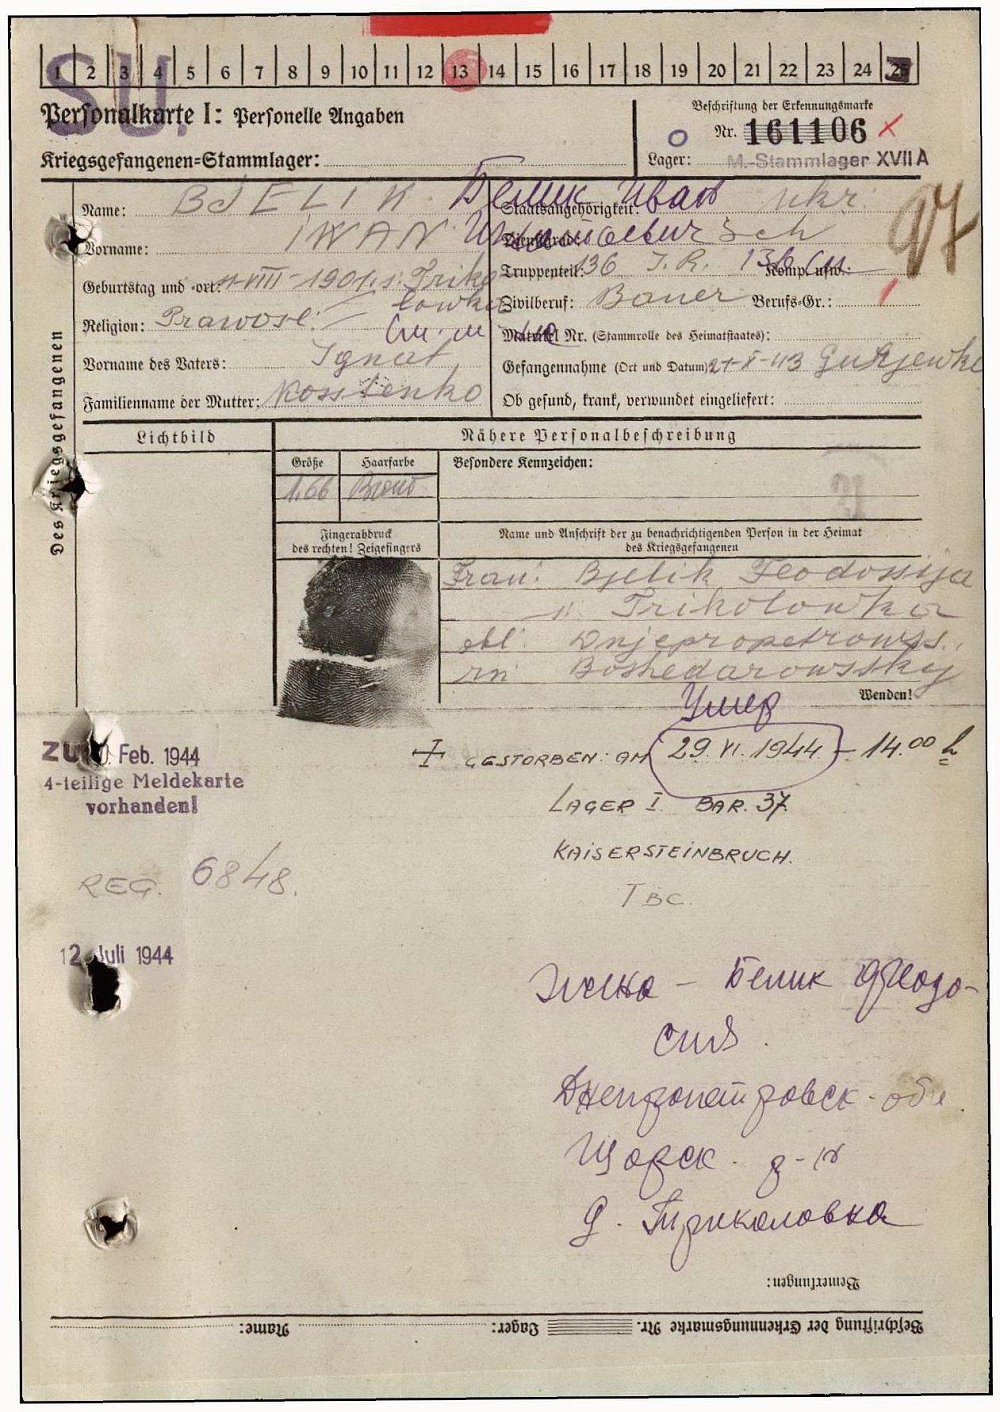 SU.
1 2 3 4 5 6 7 8 9 10 11 12 13 14 15 16 17 18 19 20 21 22 23 24 25
Personalkarte I: Personelle Angaben
Beschriftung der Erkennungsmarke
Nr. 161106 X
Kriegsgefangenen=Stammlager:
Lager: M.-Stammlager XVII A
Des Kriegsgefangenen
Name: BJELIK Белик Иван
Staatsangehörigkeit: Ukr.
Vorname: IWAN
Dienstgrad: Sch
Truppenteil: 136 J.R. Komp. usw.:
Geburtstag und =ort: VIII-1901 Triko
lowka
Zivilberuf: Bauer Berufs=Gr.:
Religion: Prawosl.
Matrikel Nr. (Stammrolle des Heimatstaates):
Vorname des Vaters: Ignat
Gefangennahme (Ort und Datum)
Familienname der Mutter: Kosstenko
Ob gesund, krank, verwundet eingeliefert:
Lichtbild
Nähere Personalbeschreibung
Größe Haarfarbe Besondere Kennzeichen:
1.66
Fingerabdruck
des rechten! Zeigefingers
Name und Anschrift der zu benachrichtigenden Person in der Heimat
des Kriegsgefangenen
Frau: Bjelik Feodossija
Trikolowka
obl: Dnjepropetrowss.
rn: Boshedarowsskij
Wenden!
Умер
GESTORBEN: AM 29. VI. 1944 - 14.00 h
LAGER I BAR. 37.
KAISERSTEINBRUCH.
TBC
Feb. 1944
4-teilige Meldekarte
vorhanden!
REG. 6848.
12. Juli 1944
Жена - Белик Феодо-
сия.
Днепропетровск. обл.
Щорск. р-н
д. Трикаловка
Bemerkungen:
Beschriftung der Erkennungsmarke Nr. Lager: Name: